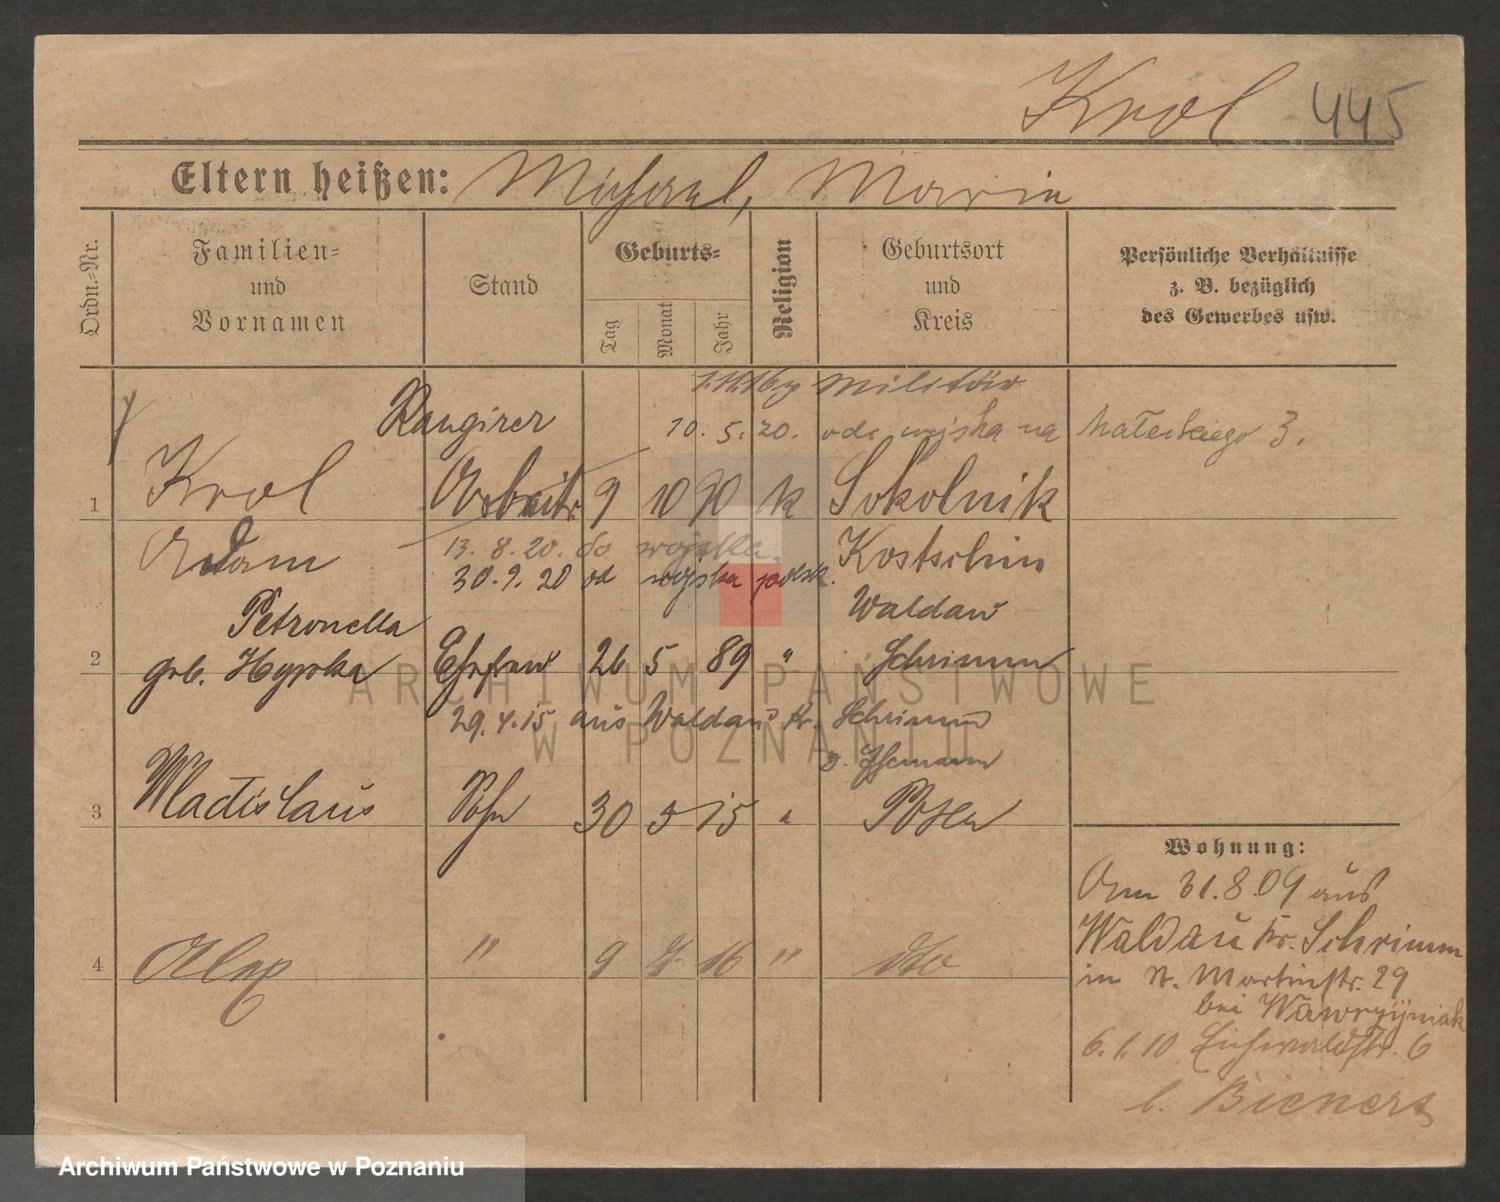 Krol 445
Eltern heißen: Michael, Maria
Ordn.-Nr.
Familien-
und
Vornamen
Stand
Geburts-
Tag
Monat
Jahr
Religion
Geburtsort
und
Kreis
Persönliche Verhältnisse
z. B. bezüglich
des Gewerbes usw.
Militär
Rangirer 10. 5. 20. wojska na 3.
1 Krol Arbeiter 9 10 90 k Sokolnik
Adam 13. 8. 20. do wojska Kostschin
30. 9. 20 od wojska polsk.
Petronella Waldau
2 geb. Ehefrau 26 5 89 " Schrimm
29. 4. 15 aus Waldau Kr. Schrimm
z. Ehemann
3 Wladislaus Sohn 30 5 15 " Posen
Wohnung:
Am 31.8.09 aus
Waldau Kr. Schrimm
in St. Martinstr. 29
bei Wawrzyniak
4 " 9 16 " dto
6. 1. 10 Eichwaldstr. 6
b. Bienert
ARCHIWUM PAŃSTWOWE
W POZNANIU
Archiwum Państwowe w Poznaniu